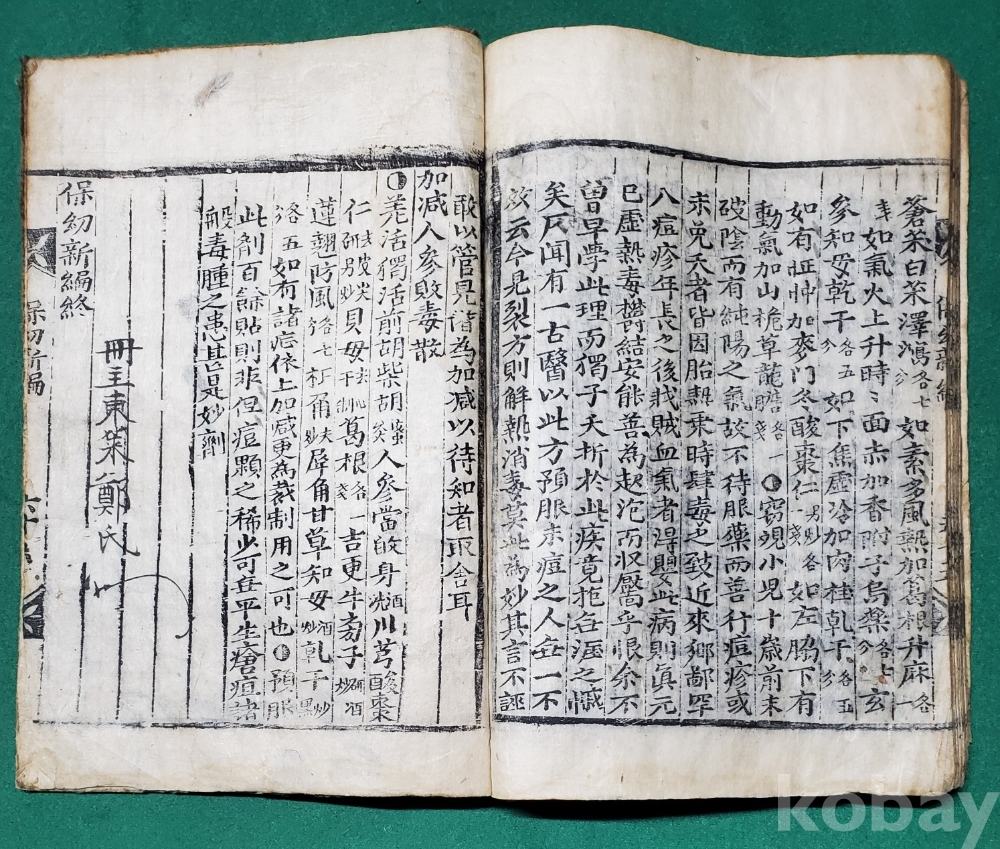 蒼朮白朮澤瀉各七分如素多風熱加葛根升麻各一
如氣火上升時時面赤加香附子烏藥各七分玄
參知母乾干各五分如下焦虛冷加肉桂乾干各五分
如有怔忡加麥門冬酸棗仁炒各一戔如左脇下有
動氣加山梔草龍膽各一戔竊覌小児十歲前未
破陰而有純陽之氣故不待服藥而善行痘疹或
未免夭者皆因胎熱乘時肆毒之致近來鄕鄙罕
八痘疹年長之後戕賊血氣者得嬰此病則眞元
已虛熱毒欝結安能善為起疱而収靨乎恨余不
曽早學此理而獨子夭折於此疾竟抱
矣仄聞有一古醫以此方預服未痘之人無一不
效云今見裂方則解熱消毒莫此為妙其言不誣
敢以管見僭為加减以待知者取舍耳
加减人參敗毒散
羌活獨活前胡柴胡人參當皈身酒洗川芎酸棗
仁去皮尖研別炒貝毋葛根各一戔吉更牛蒡子研炒酒
蓮翹防風各七分枳角夫炒犀角甘草知母酒炒乹干炒黑
各五如有諸症依上加减更為裁制用之可也預服
此劑百餘貼則非但痘顆之稀少可無平生瘡疽諸
般毒腫之患甚是妙劑
保幼新編終
冊主東萊鄭氏
保幼新編
保幼新編
kobay